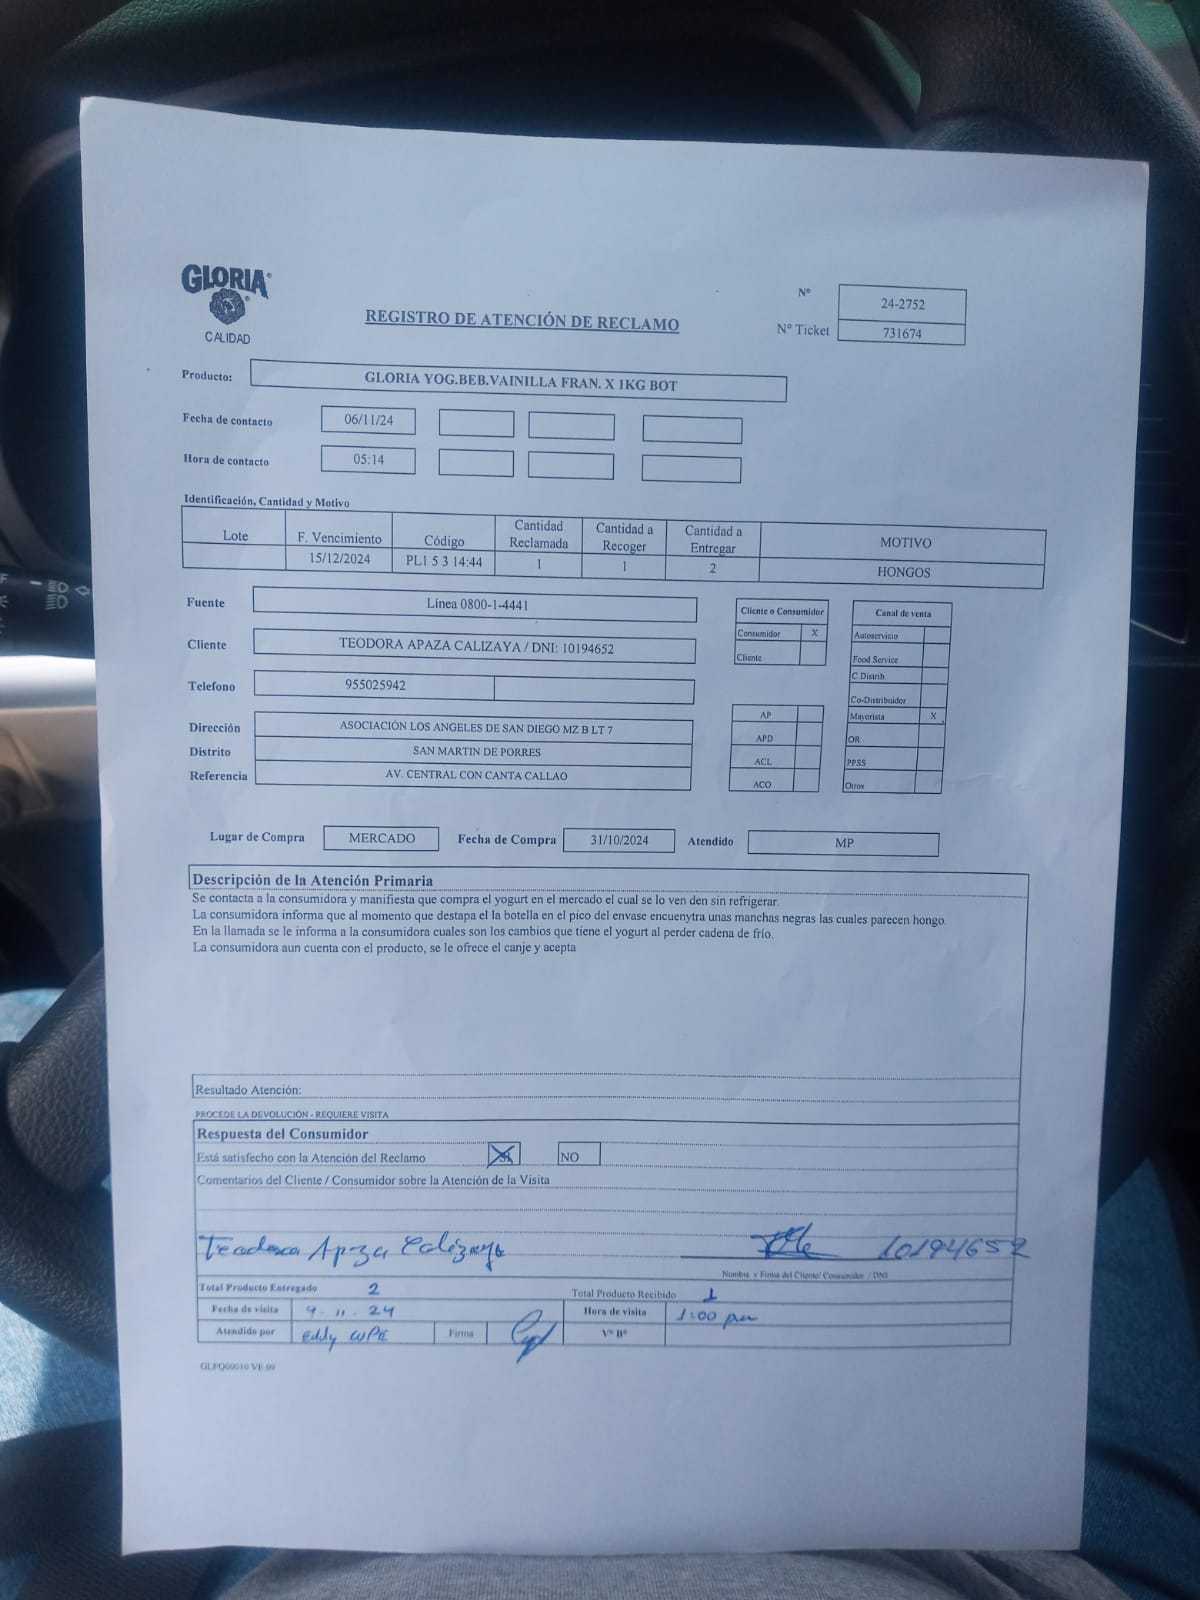 GLORIA®
CALIDAD
REGISTRO DE ATENCIÓN DE RECLAMO
Nº 24-2752
Nº Ticket 731674
Producto: GLORIA YOG.BEB.VAINILLA FRAN. X 1KG BOT
Fecha de contacto 06/11/24
Hora de contacto 05:14
Identificación, Cantidad y Motivo
Lote F. Vencimiento Código Cantidad Reclamada Cantidad a Recoger Cantidad a Entregar MOTIVO
15/12/2024 PL1 5 3 14:44 1 1 2 HONGOS
Fuente Línea 0800-1-4441
Cliente TEODORA APAZA CALIZAYA / DNI: 10194652
Telefono 955025942
Dirección ASOCIACIÓN LOS ANGELES DE SAN DIEGO MZ B LT 7
Distrito SAN MARTIN DE PORRES
Referencia AV. CENTRAL CON CANTA CALLAO
Cliente o Consumidor
Consumidor X
Cliente
AP
APD
ACL
ACO
Canal de venta
Autoservicio
Food Service
C Distrib.
Co-Distribuidor
Mayorista X
OR
PPSS
Otros
Lugar de Compra MERCADO Fecha de Compra 31/10/2024 Atendido MP
Descripción de la Atención Primaria
Se contacta a la consumidora y manifiesta que compra el yogurt en el mercado el cual se lo ven den sin refrigerar.
La consumidora informa que al momento que destapa el la botella en el pico del envase encuenytra unas manchas negras las cuales parecen hongo.
En la llamada se le informa a la consumidora cuales son los cambios que tiene el yogurt al perder cadena de frío.
La consumidora aun cuenta con el producto, se le ofrece el canje y acepta
Resultado Atención:
PROCEDE LA DEVOLUCIÓN - REQUIERE VISITA
Respuesta del Consumidor
Está satisfecho con la Atención del Reclamo SI NO
Comentarios del Cliente / Consumidor sobre la Atención de la Visita
Teodora Apza Calizaya 10194652
Nombre y Firma del Cliente/ Consumidor / DNI
Total Producto Entregado 2 Total Producto Recibido 1
Fecha de visita 9.11.24 Hora de visita 1:00 pm
Atendido por Eddy WPE Firma Vº Bº
GLFQ00010 VE 09